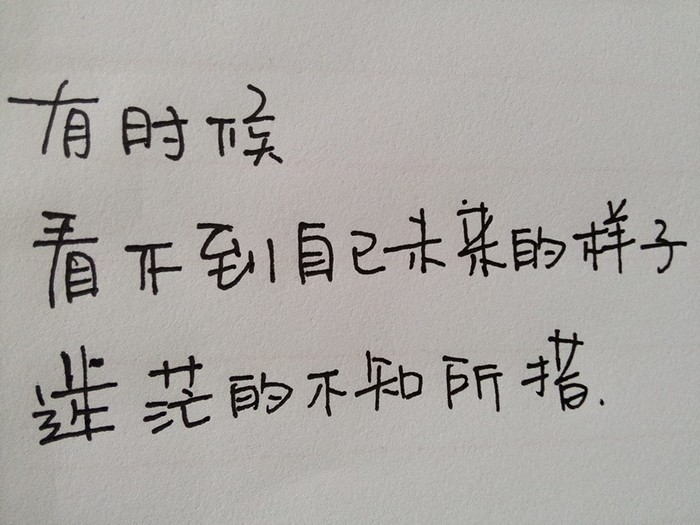 有时候
看不到自己未来的样子
迷茫的不知所措.